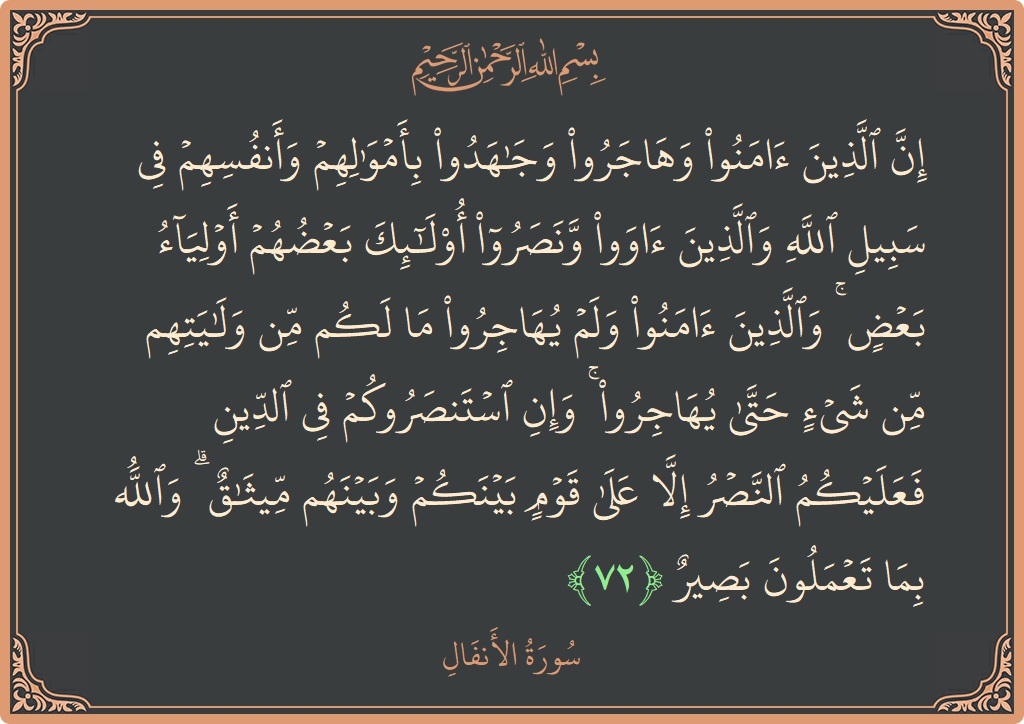 بِسْمِ اللَّهِ الرَّحْمَٰنِ الرَّحِيمِ
إِنَّ ٱلَّذِينَ ءَامَنُوا۟ وَهَاجَرُوا۟ وَجَـٰهَدُوا۟ بِأَمْوَٰلِهِمْ وَأَنفُسِهِمْ فِى
سَبِيلِ ٱللَّهِ وَٱلَّذِينَ ءَاوَوا۟ وَّنَصَرُوٓا۟ أُو۟لَـٰٓئِكَ بَعْضُهُمْ أَوْلِيَآءُ
بَعْضٍ ۚ وَٱلَّذِينَ ءَامَنُوا۟ وَلَمْ يُهَاجِرُوا۟ مَا لَكُم مِّن وَلَـٰيَتِهِم
مِّن شَىْءٍ حَتَّىٰ يُهَاجِرُوا۟ ۚ وَإِنِ ٱسْتَنصَرُوكُمْ فِى ٱلدِّينِ
فَعَلَيْكُمُ ٱلنَّصْرُ إِلَّا عَلَىٰ قَوْمٍۭ بَيْنَكُمْ وَبَيْنَهُم مِّيثَـٰقٌ ۗ وَٱللَّهُ
بِمَا تَعْمَلُونَ بَصِيرٌ ﴿٧٢﴾
سُورَةُ الأَنفَالِ